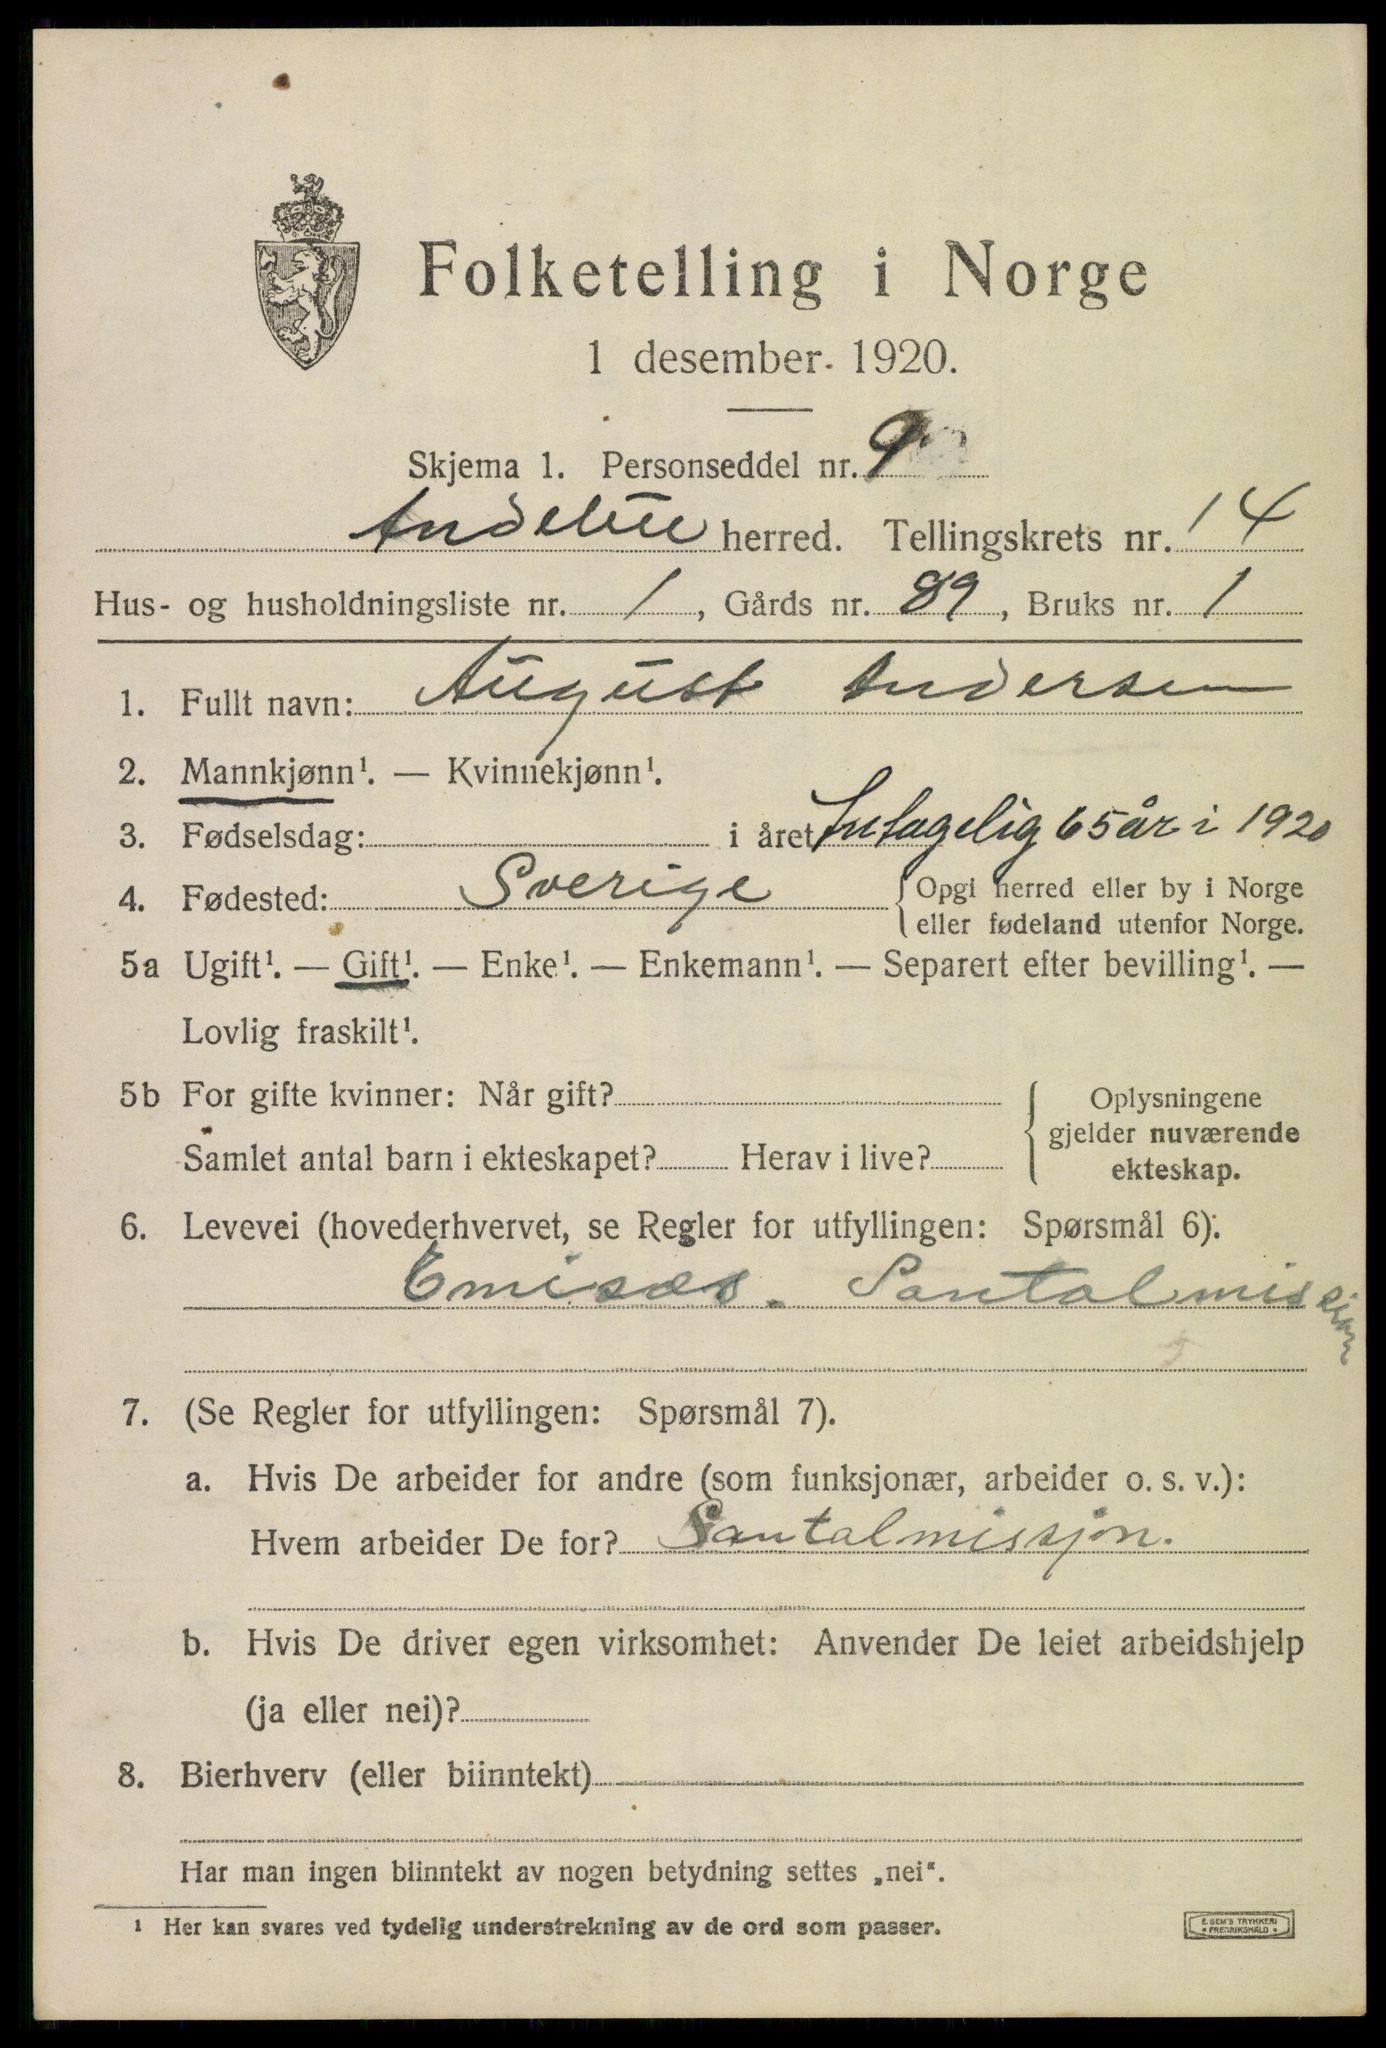 Folketelling i Norge
1 desember 1920.
Skjema 1. Personseddel nr. 9
Andebu herred. Tellingskrets nr. 14
Hus- og husholdningsliste nr. 1, Gårds nr. 89, Bruks nr. 1
1. Fullt navn: August Andersen
2. Mannkjønn¹. — Kvinnekjønn¹.
3. Fødselsdag: i året Antagelig 65 år i 1920
4. Fødested: Sverige {Opgi herred eller by i Norge
eller fødeland utenfor Norge.
5a Ugift¹. — Gift¹. — Enke¹. — Enkemann¹. — Separert efter bevilling¹. —
Lovlig fraskilt¹.
5b For gifte kvinner: Når gift? { Oplysningene
gjelder nuværende
Samlet antal barn i ekteskapet? Herav i live?
ekteskap.
6. Levevei (hovederhvervet, se Regler for utfyllingen: Spørsmål 6).
Emisær. Santalmissjon
7. (Se Regler for utfyllingen: Spørsmål 7).
a. Hvis De arbeider for andre (som funksjonær, arbeider o. s. v.):
Hvem arbeider De for? Santalmissjon.
b. Hvis De driver egen virksomhet: Anvender De leiet arbeidshjelp
(ja eller nei)?
8. Bierhverv (eller biinntekt)
Har man ingen biinntekt av nogen betydning settes „nei“.
¹ Her kan svares ved tydelig understrekning av de ord som passer.
E. SEM'S TRYKKERI
• FREDRIKSHALD •